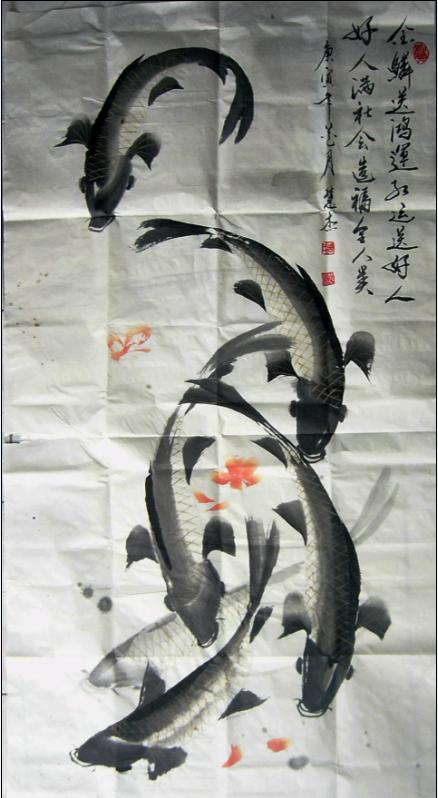 金鳞送鸿運红运送好人
好人满社会造福全人类
庚寅年
月慧杰